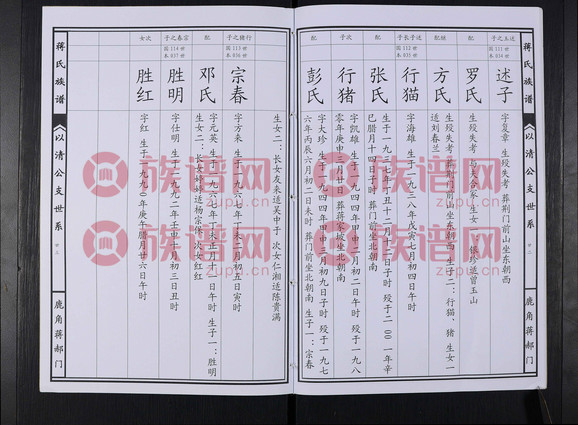 蒋氏族谱
以清公支世系
鹿角蒋郝门
述玉之子
国111世
本034世
述子
字夏章 生殁失考 葬荆门前山坐东朝西
配
罗氏
生殁失考
银珍适曾玉山
继配
方氏
生殁失考 葬荆门前山坐东朝西 生子二：行猫、猪 生女一
适刘春兰
述子长子
国112世
本035世
行猫
字海雄 生于一九三八年戊寅七月初四日午时
配
张氏
生于一九三七年丁丑十二月十二日子时 殁于二〇〇一年辛
巳腊月十四日子时 葬门前坐北朝南
次子
行猪
字凯雄 生于一九四四年甲申二月初二日午时 殁于一九八
零年庚申三月廿日 葬蒋家坡坐北朝南
配
彭氏
字大珍 生于一九四四年甲申十月初九日子时 殁于一九七
六年丙辰六月初二日未时 葬门前坐北朝南 生子一：宗春
生女二：长女友来适吴中于 次女仁湘适陈贵满
行猪之子
国113世
本036世
宗春
字方来 生于一九六七年丁未二月初五日寅时
配
邓氏
字元英 生于一九六七年丁未正月十一日午时 生子一：胜明
生女二：长女婷婷适杨宗保 次女红红
宗春之子
国114世
本037世
胜明
字仕明 生于一九九二年壬申十月初三日丑时
次女
胜红
字红 生于一九九〇年庚午腊月廿六日午时
蒋氏族谱
以清公支世系
鹿角蒋郝门
族谱网
zupu.cn
族谱网
zupu.cn
族谱网
zupu.cn
族谱网
zupu.cn